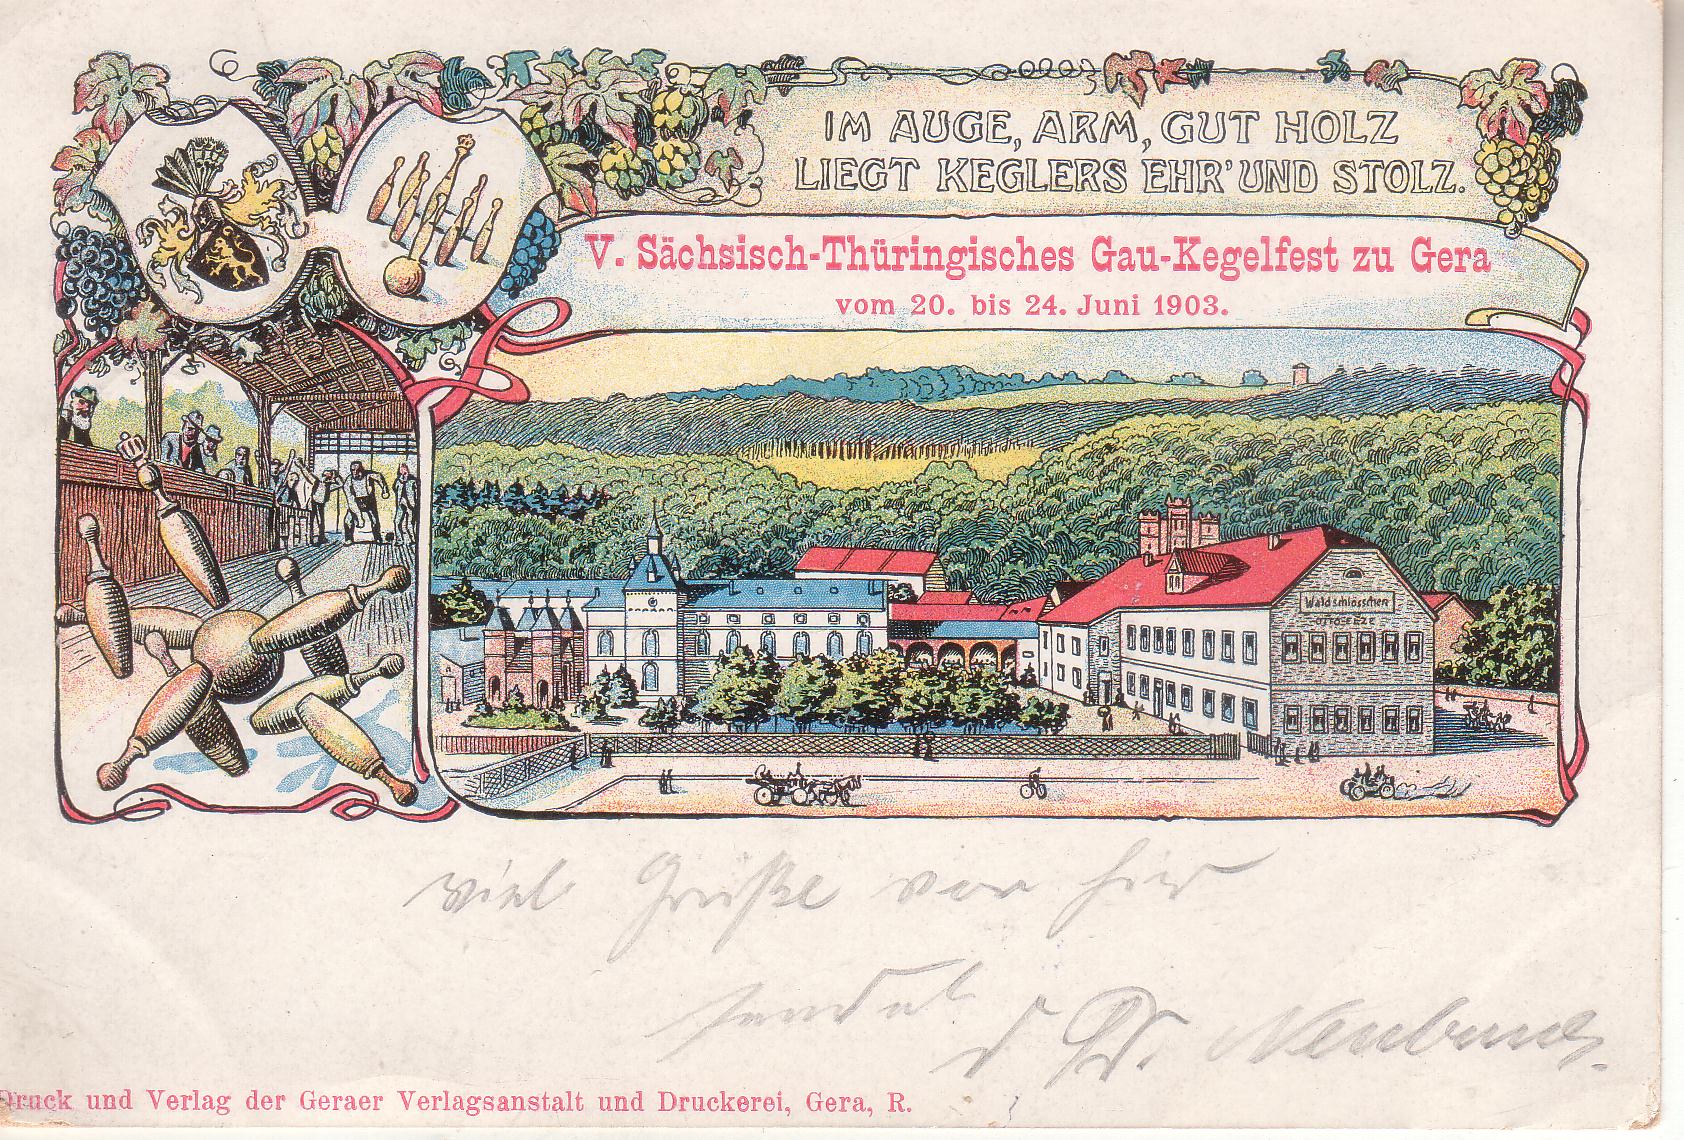 IM AUGE, ARM, GUT HOLZ
LIEGT KEGLERS EHR' UND STOLZ.
V. Sächsisch-Thüringisches Gau-Kegelfest zu Gera
vom 20. bis 24. Juni 1903.
Waldschlösschen
viel Grüße von hier
sendet
Druck und Verlag der Geraer Verlagsanstalt und Druckerei, Gera, R.